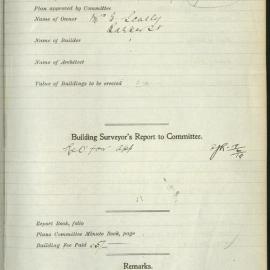 Plan approved by Committee
Name of Owner Mr J. Scally
Barker St
Name of Builder
Name of Architect
Value of Buildings to be erected
Building Surveyor's Report to Committee.
Rec for app
Report Book, folio
Plans Committee Minute Book, page
Building Fee Paid 5
Remarks.